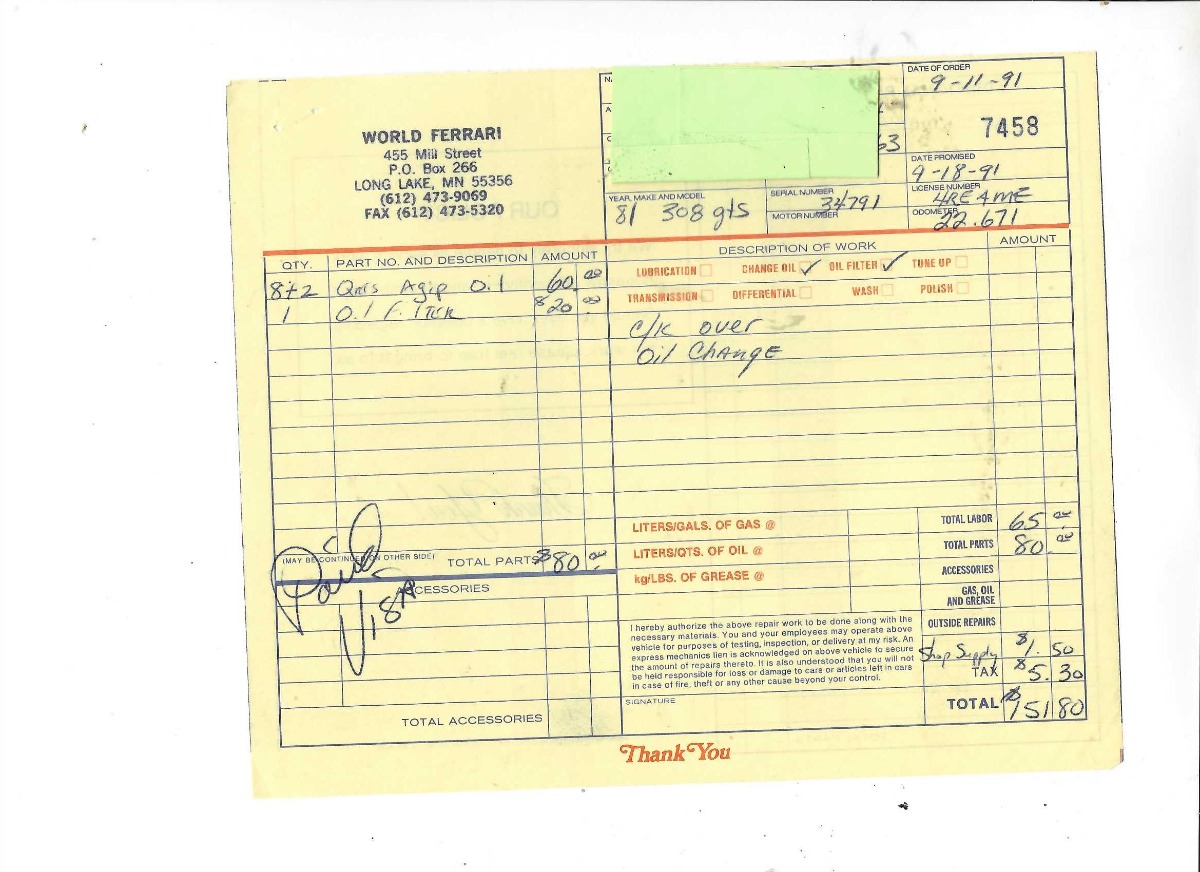 WORLD FERRARI
455 Mill Street
P.O. Box 266
LONG LAKE, MN 55356
(612) 473-9069
FAX (612) 473-5320
DATE OF ORDER
9-11-91
7458
63
DATE PROMISED
9-18-91
YEAR, MAKE AND MODEL
81 308 gts
SERIAL NUMBER
34791
MOTOR NUMBER
LICENSE NUMBER
4RE AME
ODOMETER
22.671
QTY. PART NO. AND DESCRIPTION AMOUNT
8+2 Qrts Agip Oil 60.00
1 Oil FilTER $20.00
DESCRIPTION OF WORK AMOUNT
LUBRICATION CHANGE OIL ✓ OIL FILTER ✓ TUNE UP
TRANSMISSION DIFFERENTIAL WASH POLISH
c/k over
Oil ChANgE
(MAY BE CONTINUED ON OTHER SIDE) TOTAL PARTS $80.00
Paid
ViSA
ACCESSORIES
TOTAL ACCESSORIES
LITERS/GALS. OF GAS @
LITERS/QTS. OF OIL @
kg/LBS. OF GREASE @
TOTAL LABOR 65.00
TOTAL PARTS 80.00
ACCESSORIES
GAS, OIL
AND GREASE
OUTSIDE REPAIRS
Shop Supply $1.50
TAX $5.30
TOTAL $151 80
I hereby authorize the above repair work to be done along with the
necessary materials. You and your employees may operate above
vehicle for purposes of testing, inspection, or delivery at my risk. An
express mechanics lien is acknowledged on above vehicle to secure
the amount of repairs thereto. It is also understood that you will not
be held responsible for loss or damage to cars or articles left in cars
in case of fire, theft or any other cause beyond your control.
SIGNATURE
Thank You